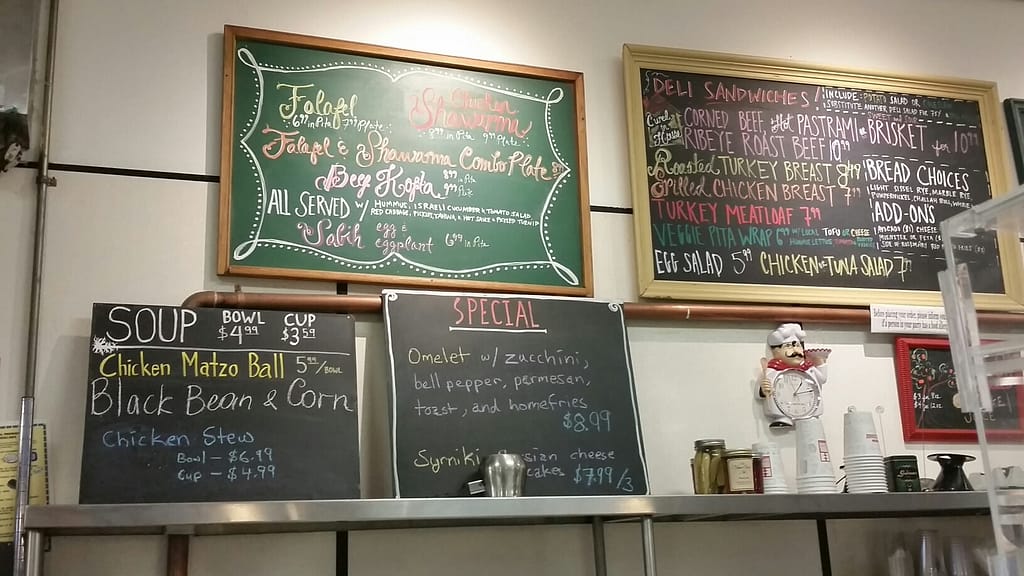 Falafel
6.99 in Pita 7.99 Plate
Chicken
Shawarma
8.99 in Pita 9.99 Plate
Falafel & Shawarma Combo Plate
Beef Kefta
ALL SERVED W/ HUMMUS, ISRAELI CUCUMBER & TOMATO SALAD
RED CABBAGE, PICKLES, TAHINA & HOT SAUCE & PICKLED TURNIP
Sabih egg &
eggplant 6.99 in Pita
DELI SANDWICHES / INCLUDE POTATO SALAD OR
SUBSTITUTE ANOTHER DELI SALAD
CORNED BEEF Hot PASTRAMI or BRISKET for 10.99
RIBEYE ROAST BEEF 10.99
Roasted TURKEY BREAST 8.99
Grilled CHICKEN BREAST 7.99
TURKEY MEATLOAF 7.99
VEGGIE PITA WRAP 6.99 W/ TOFU OR CHEESE
EGG SALAD 5.99 CHICKEN or TUNA SALAD 7.99
BREAD CHOICES
LIGHT SISSEL RYE, MARBLE RYE
PUMPERNICKEL, CHALLAH ROLL
ADD-ONS
AVOCADO ($1) CHEESE
SOUP BOWL CUP
$4.99 $3.59
Chicken Matzo Ball 5.99/BOWL
Black Bean & Corn
Chicken Stew
Bowl — $6.99
Cup — $4.99
SPECIAL
Omelet w/ zucchini,
bell pepper, parmesan,
toast, and homefries
$8.99
Syrniki cheese
cakes $7.99/3
Before placing your order, please inform
if a person in your party has a food allergy